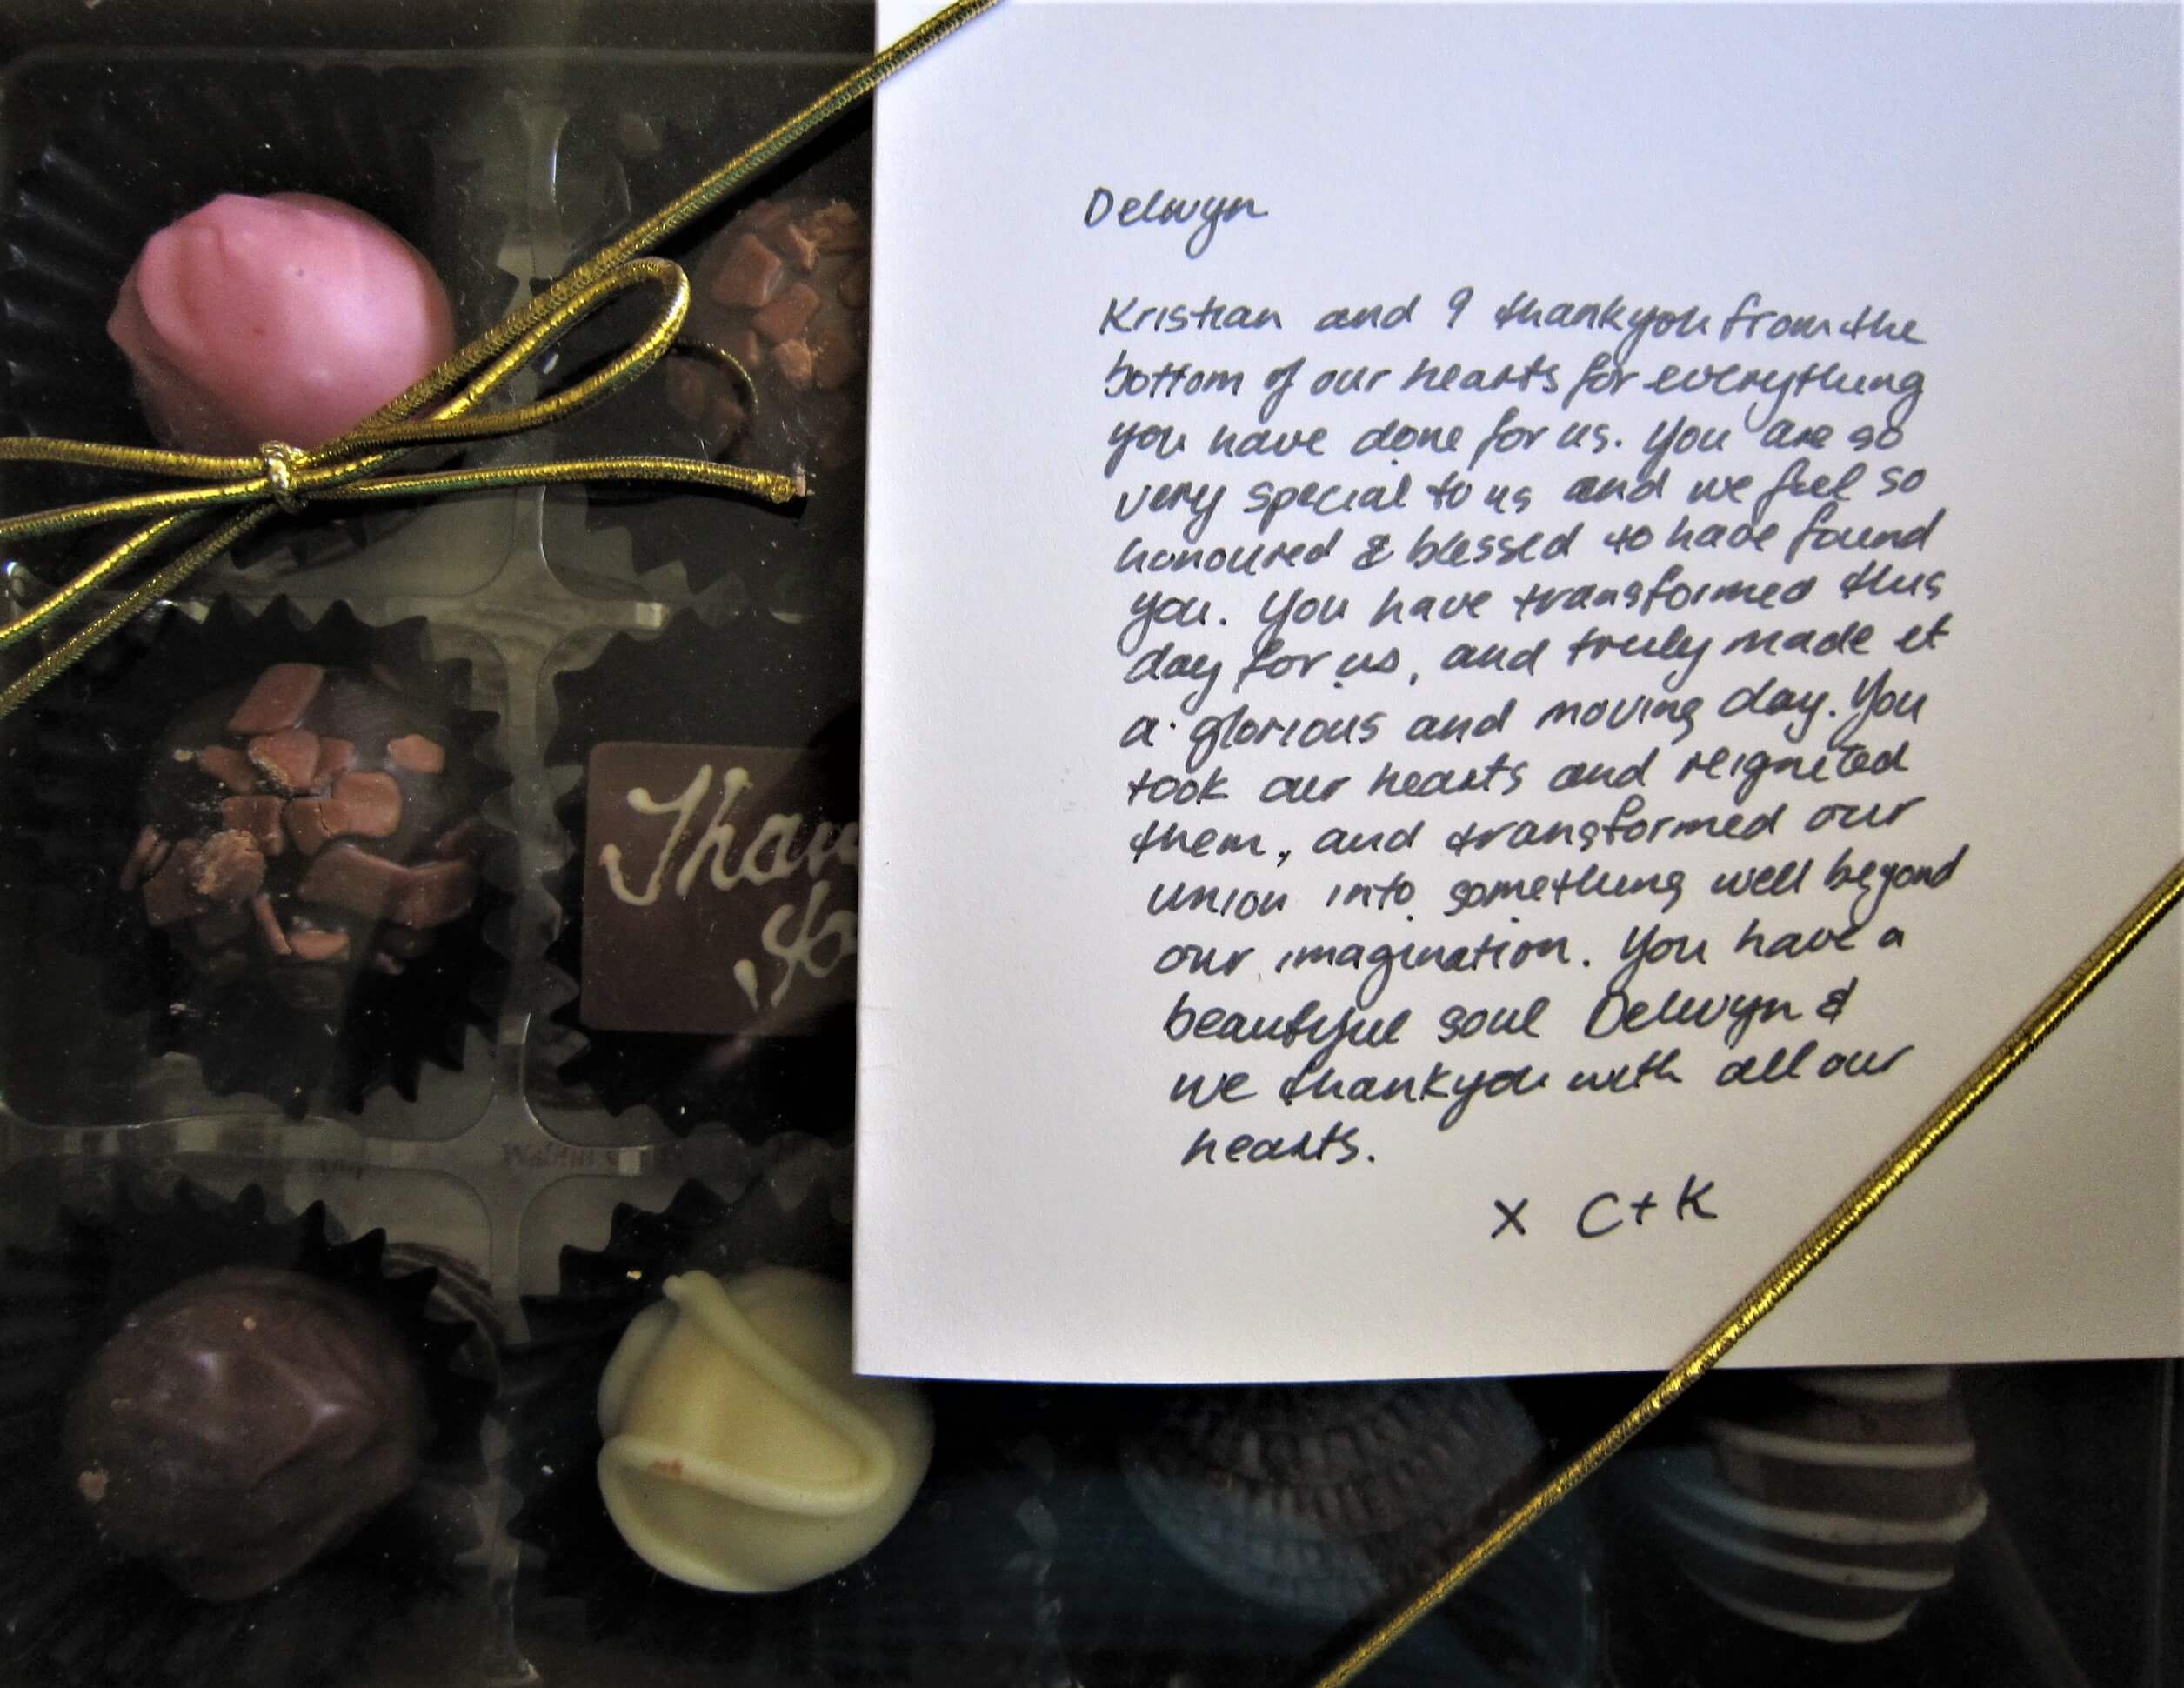 Delwyn
Kristian and I thankyou from the
bottom of our hearts for everything
you have done for us. You are so
very special to us and we feel so
honoured & blessed to have found
you. You have transformed this
day for us, and truly made it
a glorious and moving day. You
took our hearts and reignited
them, and transformed our
union into something well beyond
our imagination. You have a
beautiful soul Delwyn &
we thankyou with all our
hearts.
X C+K
Than
yo
Walnut